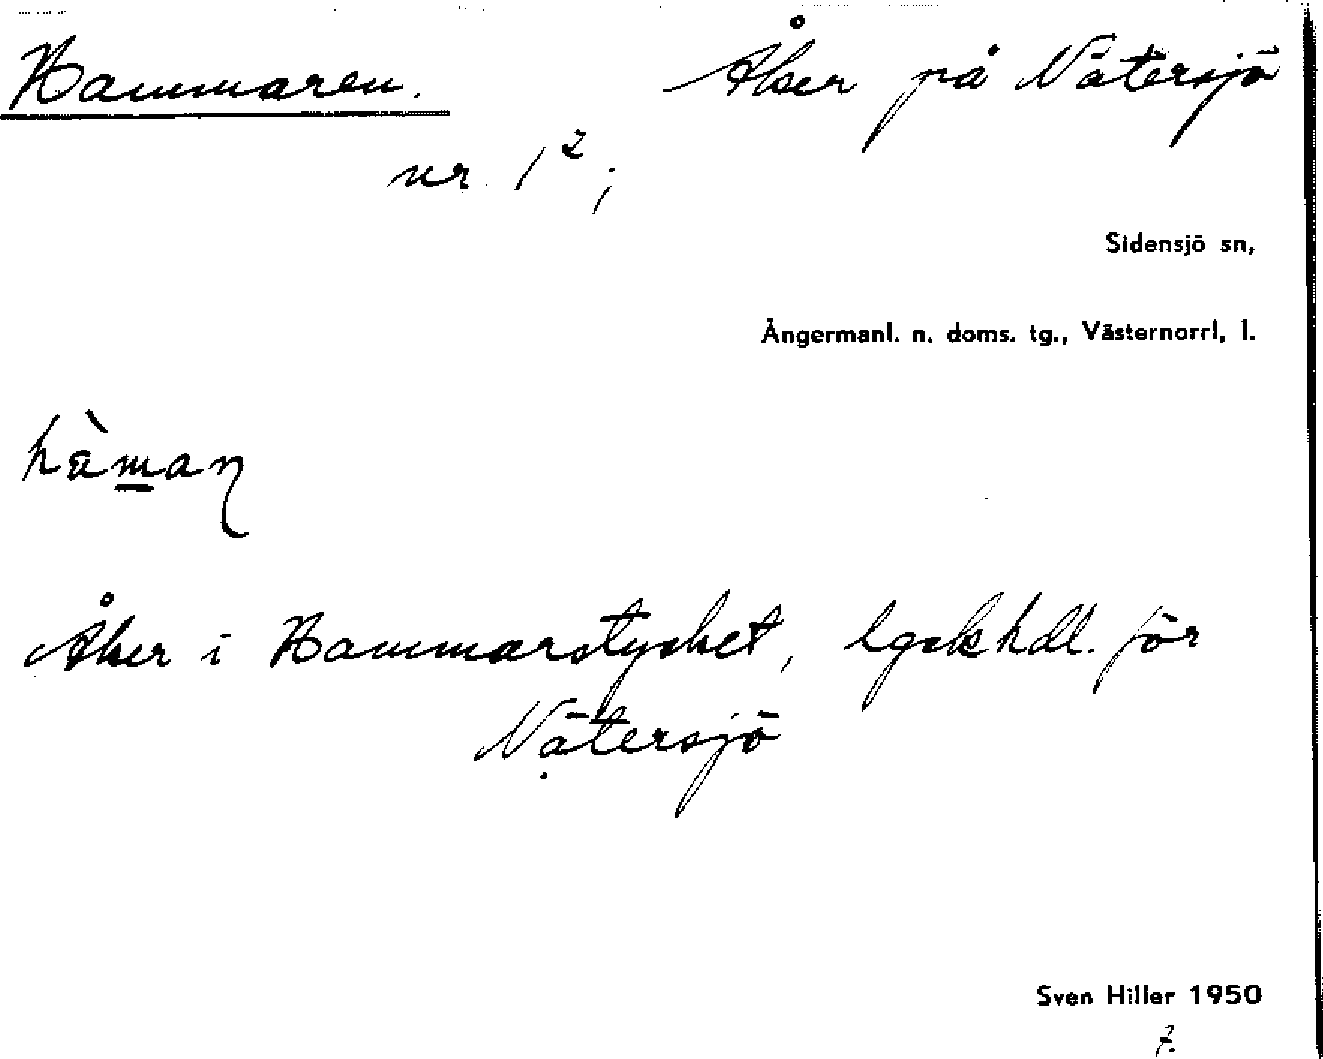 Hammaren. Åker på Nätersjö
nr 1²;
Sidensjö sn,
Ångermanl. n. doms. tg., Västernorrl. l.
hàmaɳ
Åker i Hammarstycket, lgskhdl. för
Nätersjö
Sven Hiller 1950
7.